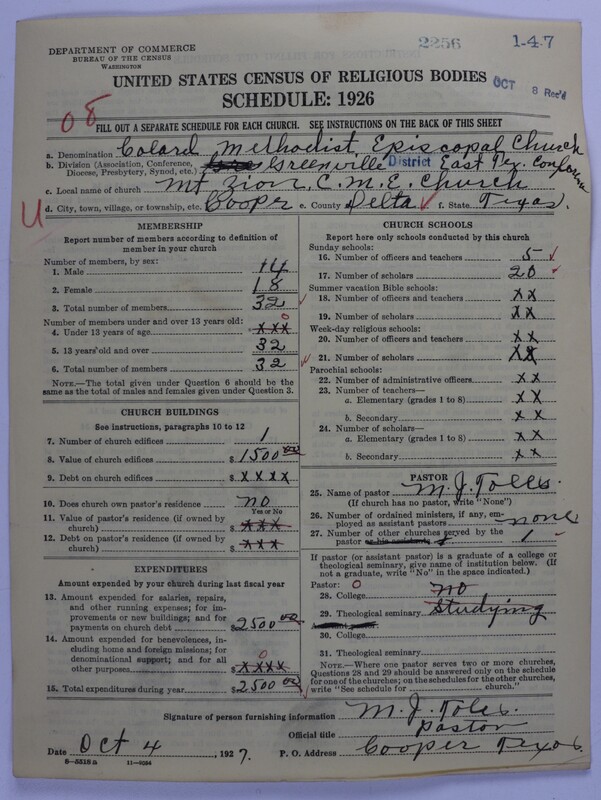 DEPARTMENT OF COMMERCE
BUREAU OF THE CENSUS
WASHINGTON
2256
1-4-7
UNITED STATES CENSUS OF RELIGIOUS BODIES
OCT 8 Rec'd
SCHEDULE: 1926
08
FILL OUT A SEPARATE SCHEDULE FOR EACH CHURCH. SEE INSTRUCTIONS ON THE BACK OF THIS SHEET
a. Denomination Colard Methodist Episcopal Church
b. Division (Association, Conference, Diocese, Presbytery, Synod, etc.) Greenville District East Tex. Conference
c. Local name of church Mt Zion C.M.E. Church
U
d. City, town, village, or township, etc. Cooper e. County Delta f. State Texas.
MEMBERSHIP
Report number of members according to definition of
member in your church
Number of members, by sex:
1. Male 14
2. Female 18
3. Total number of members 32
Number of members under and over 13 years old: 0
4. Under 13 years of age xxx
5. 13 years old and over 32
6. Total number of members 32
NOTE.—The total given under Question 6 should be the
same as the total of males and females given under Question 3.
CHURCH BUILDINGS
See instructions, paragraphs 10 to 12
7. Number of church edifices 1
8. Value of church edifices $1500 xx
9. Debt on church edifices $xxxx
10. Does church own pastor's residence no
Yes or No
11. Value of pastor's residence (if owned by
church) $xxx
12. Debt on pastor's residence (if owned by
church) $xxx
EXPENDITURES
Amount expended by your church during last fiscal year
13. Amount expended for salaries, repairs,
and other running expenses; for im-
provements or new buildings; and for
payments on church debt $2500 00
14. Amount expended for benevolences, in-
cluding home and foreign missions; for
denominational support; and for all 0
other purposes $xxxx
15. Total expenditures during year $2500 00
CHURCH SCHOOLS
Report here only schools conducted by this church
Sunday schools:
16. Number of officers and teachers 5
17. Number of scholars 20
Summer vacation Bible schools:
18. Number of officers and teachers xx
19. Number of scholars xx
Week-day religious schools:
20. Number of officers and teachers xx
21. Number of scholars xx
Parochial schools:
22. Number of administrative officers xx
23. Number of teachers—
a. Elementary (grades 1 to 8) xx
b. Secondary xx
24. Number of scholars—
a. Elementary (grades 1 to 8) xx
b. Secondary xx
PASTOR
25. Name of pastor M. J. Toles.
(If church has no pastor, write "None")
26. Number of ordained ministers, if any, em-
ployed as assistant pastors none
27. Number of other churches served by the
pastor or his assistants 1
If pastor (or assistant pastor) is a graduate of a college or
theological seminary, give name of institution below. (If
not a graduate, write "No" in the space indicated.)
Pastor: 0
28. College no
29. Theological seminary studying
30. College
31. Theological seminary
NOTE.—Where one pastor serves two or more churches,
Questions 28 and 29 should be answered only on the schedule
for one of the churches; on the schedules for the other churches,
write "See schedule for church."
Signature of person furnishing information M. J. Toles.
Official title Pastor
Date Oct 4, 1927. P. O. Address Cooper Texas.
8—5518a 11—9034